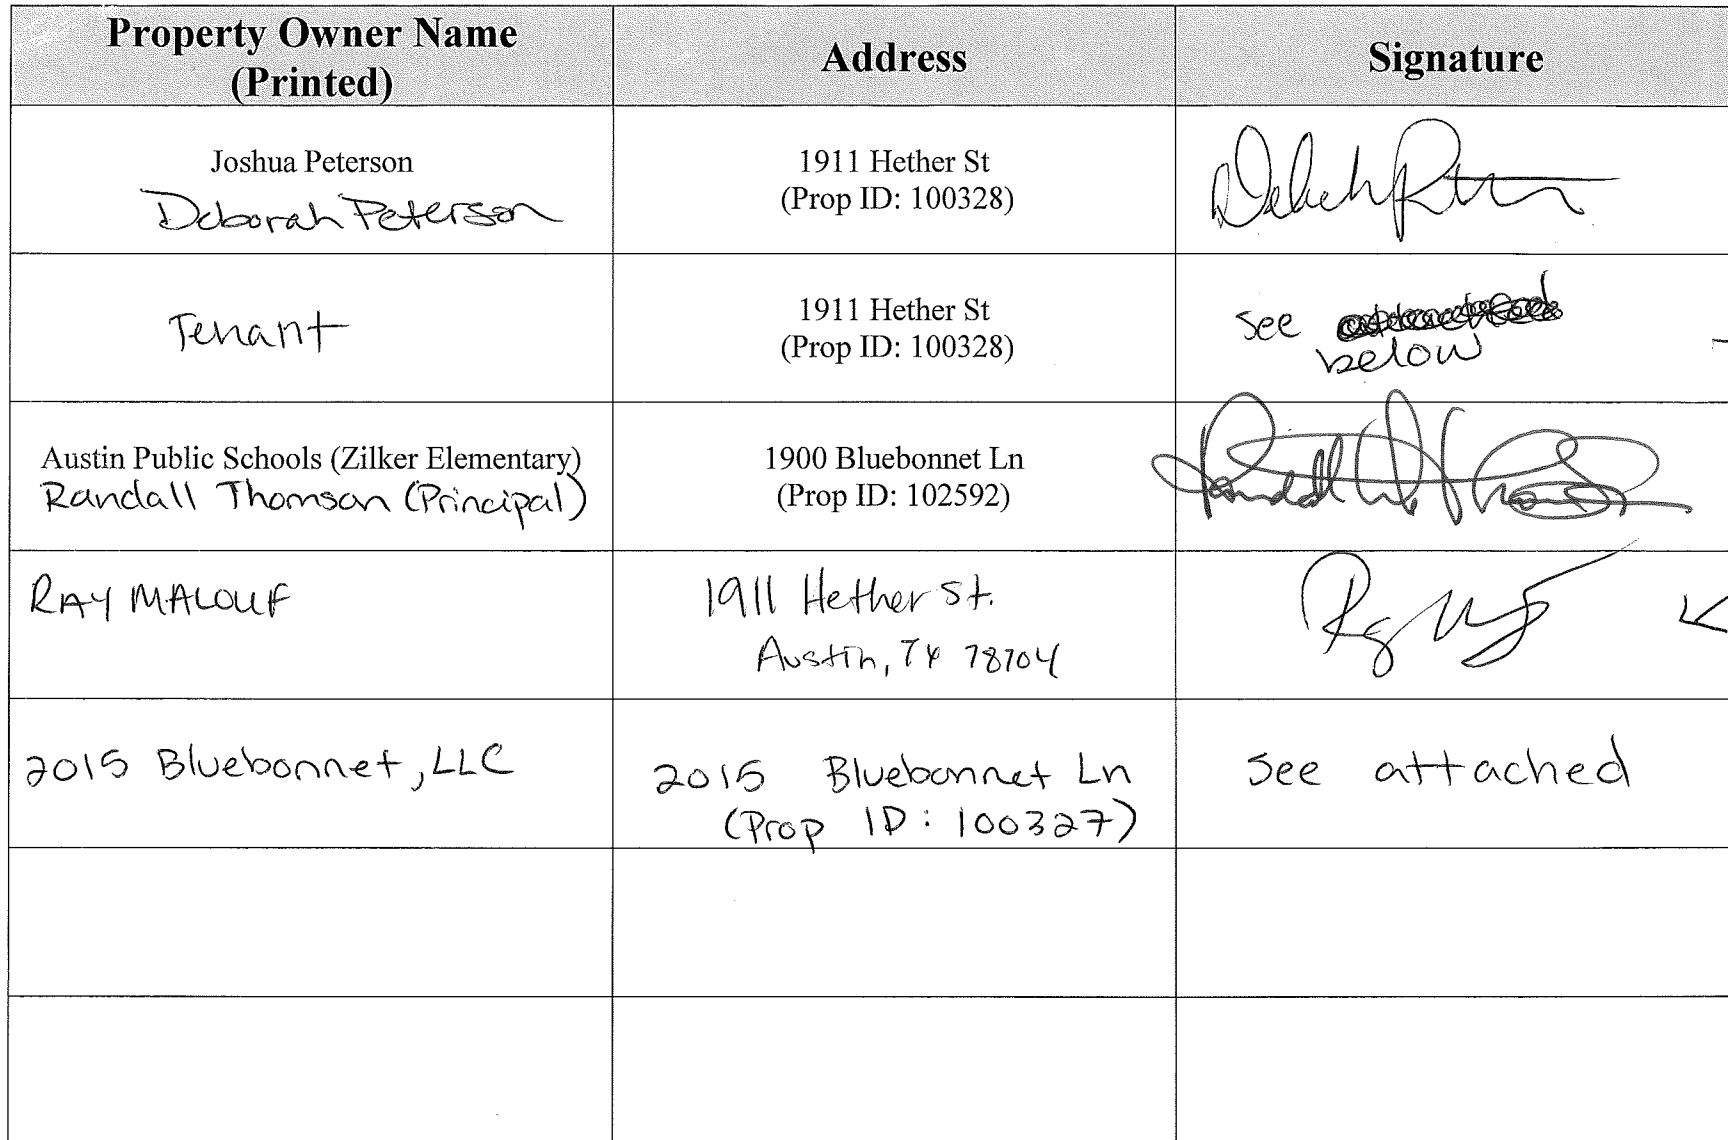 Property Owner Name
(Printed)
Address
Signature
Joshua Peterson
Deborah Peterson
1911 Hether St
(Prop ID: 100328)
Tenant
1911 Hether St
(Prop ID: 100328)
see
below
Austin Public Schools (Zilker Elementary)
Randall Thomson (Principal)
1900 Bluebonnet Ln
(Prop ID: 102592)
RAY MALOUF
1911 Hether St.
Austin, TX 78704
2015 Bluebonnet, LLC
2015 Bluebonnet Ln
(Prop ID: 100327)
see attached